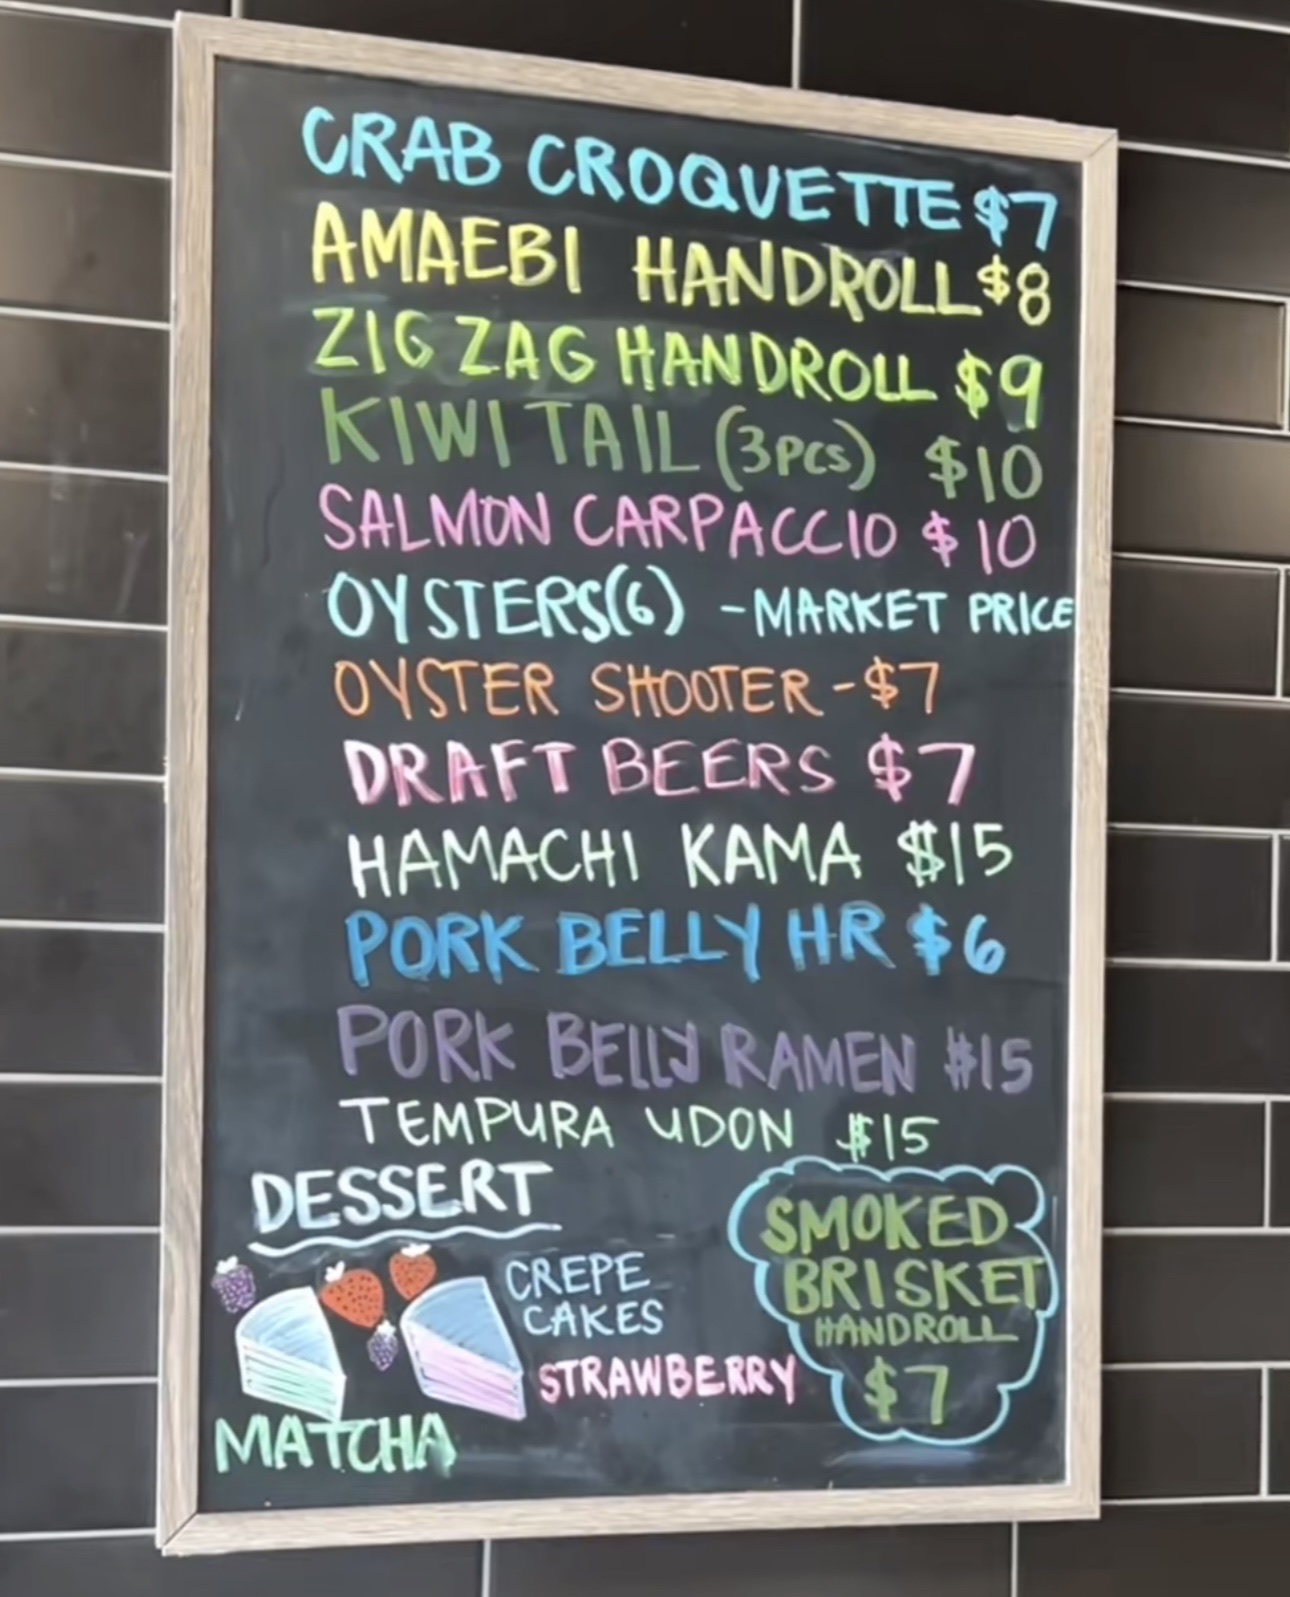 CRAB CROQUETTE $7
AMAEBI HANDROLL $8
ZIG ZAG HANDROLL $9
KIWI TAIL (3PCS) $10
SALMON CARPACCIO $10
OYSTERS(6) - MARKET PRICE
OYSTER SHOOTER - $7
DRAFT BEERS $7
HAMACHI KAMA $15
PORK BELLY HR $6
PORK BELLY RAMEN $15
TEMPURA UDON $15
DESSERT
CREPE
CAKES
STRAWBERRY
MATCHA
SMOKED
BRISKET
HANDROLL
$7